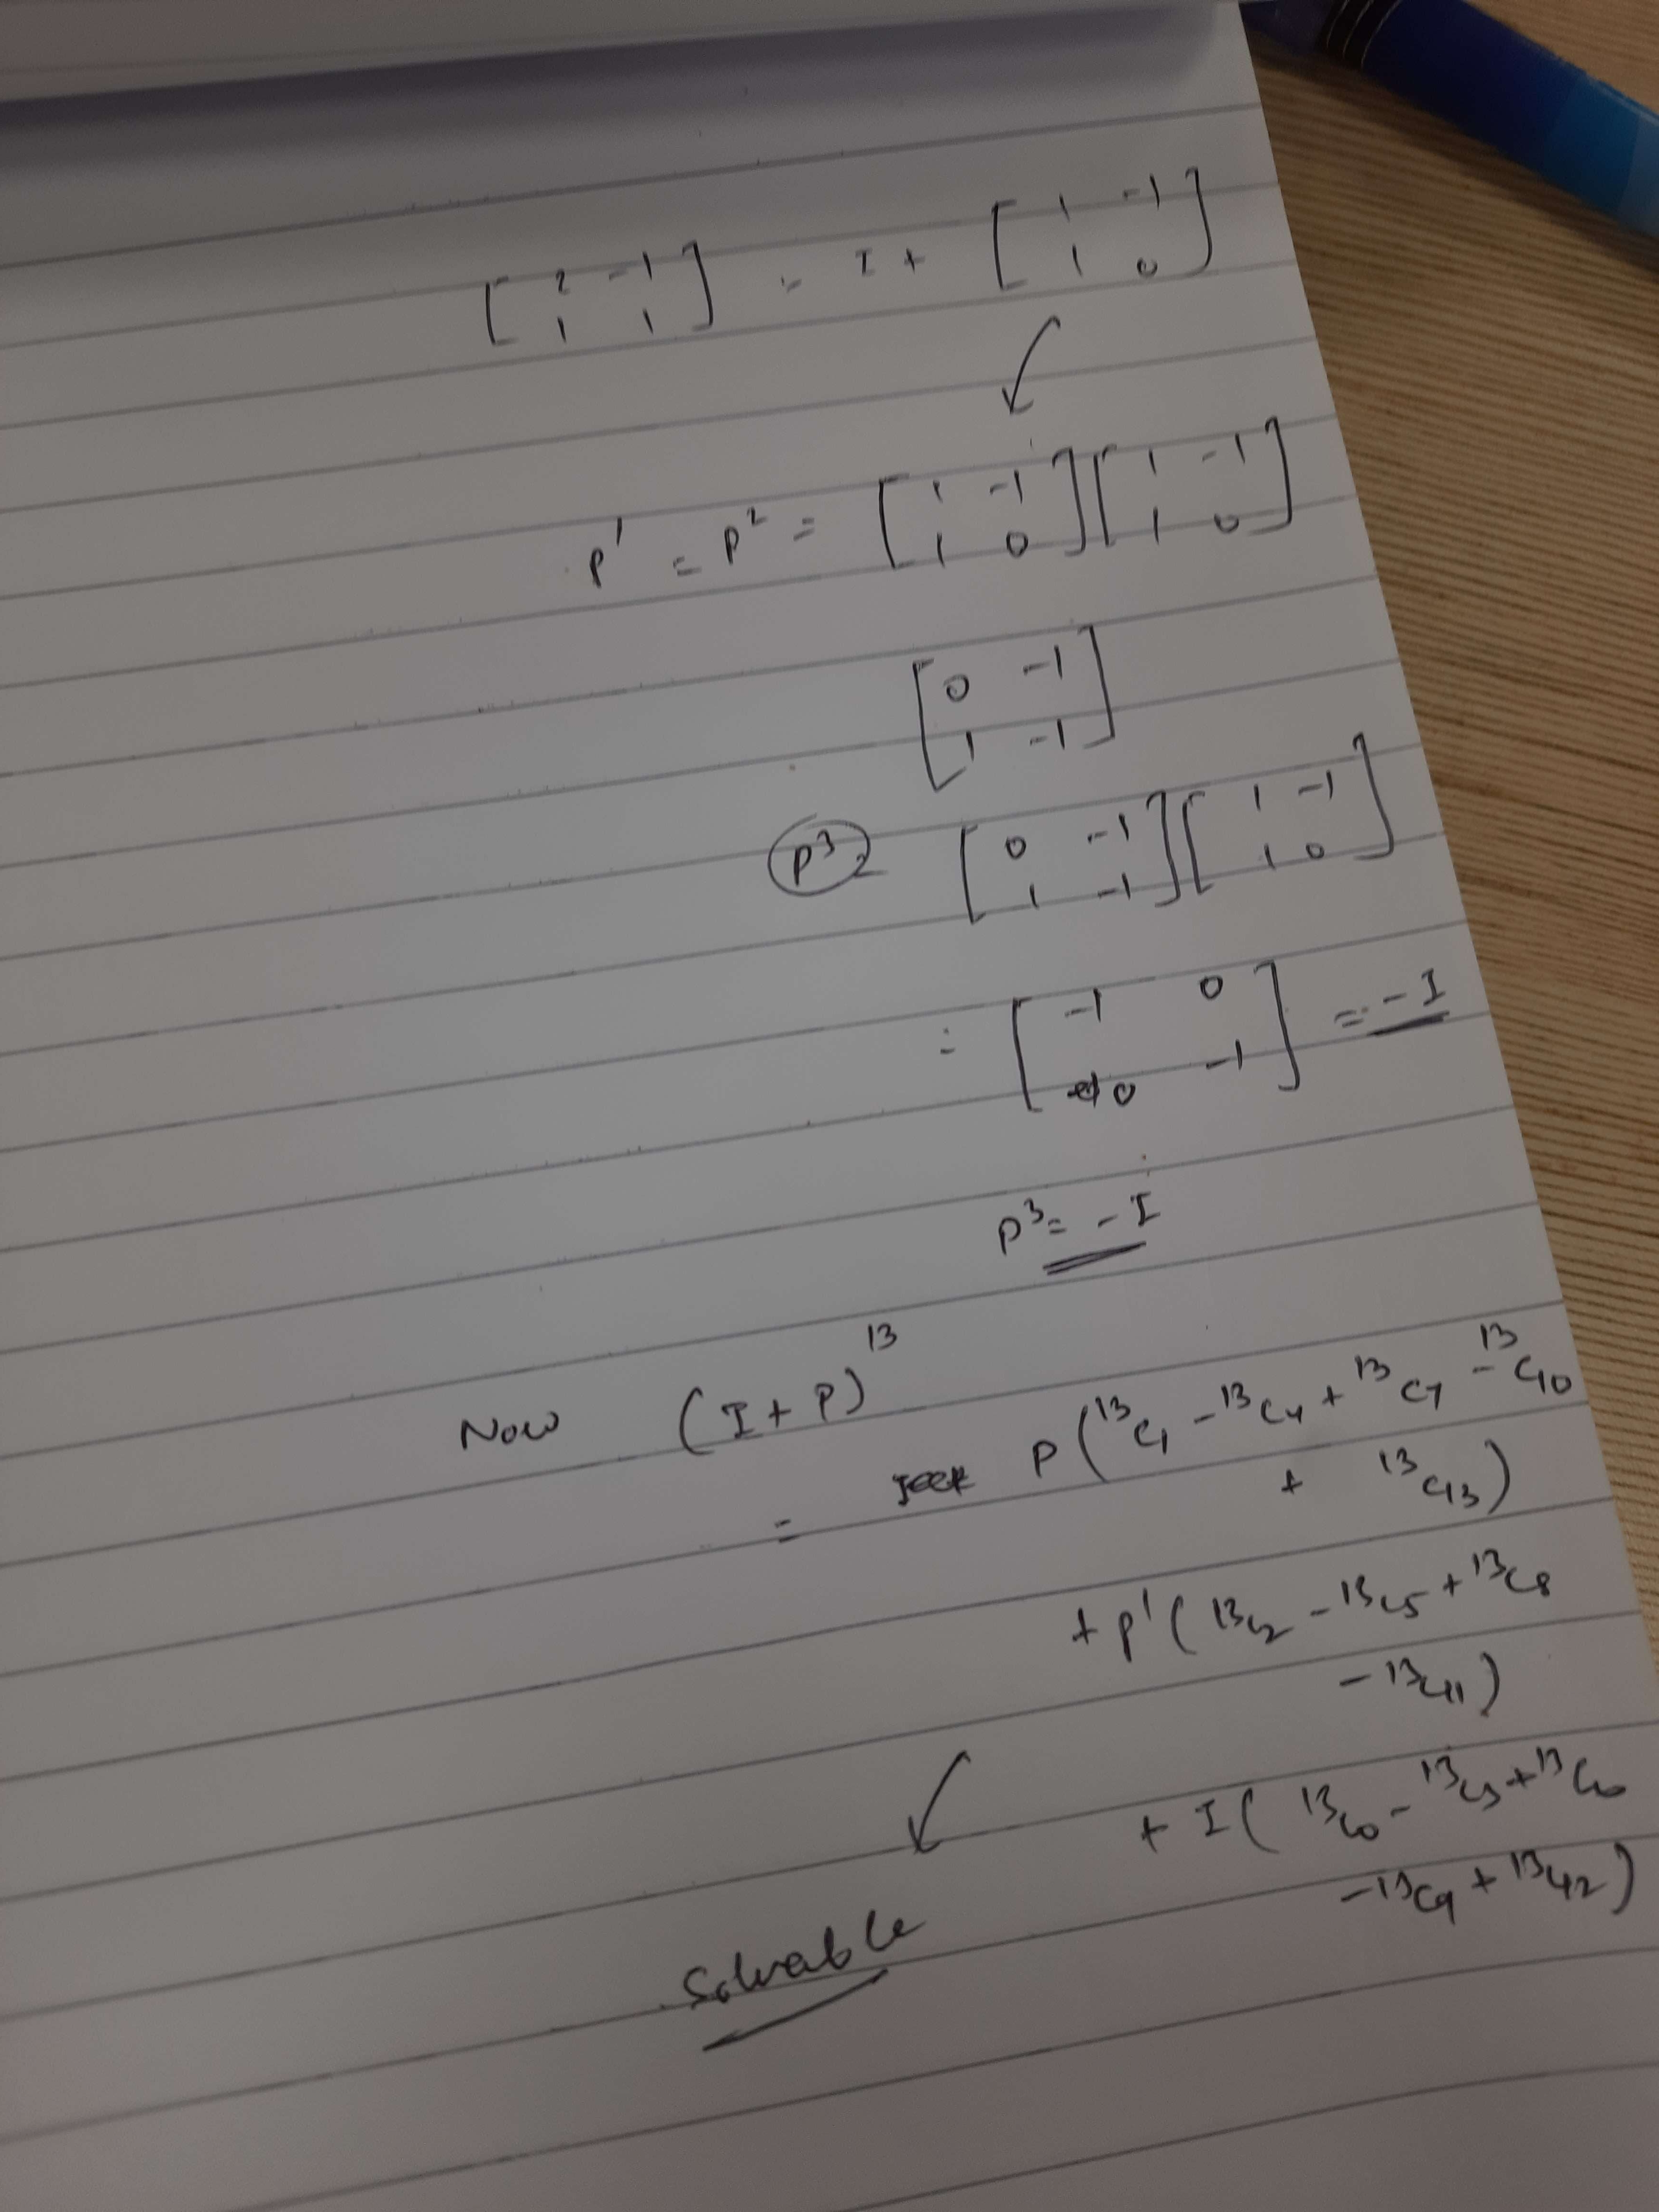 [ 2 -1 ] = I + [ 1 -1 ]
[ 1 1 ] [ 1 0 ]
P' = P² = [ 1 -1 ] [ 1 -1 ]
[ 1 0 ] [ 1 0 ]
[ 0 -1 ]
[ 1 -1 ]
P³ = [ 0 -1 ] [ 1 -1 ]
[ 1 -1 ] [ 1 0 ]
= [ -1 0 ] = -I
[ 0 -1 ]
P³ = -I
Now (I + P)¹³
= P (¹³C₁ - ¹³C₄ + ¹³C₇ - ¹³C₁₀
+ ¹³C₁₃)
+ P' ( ¹³C₂ - ¹³C₅ + ¹³C₈
- ¹³C₁₁ )
+ I ( ¹³C₀ - ¹³C₃ + ¹³C₆
- ¹³C₉ + ¹³C₁₂ )
Solvable